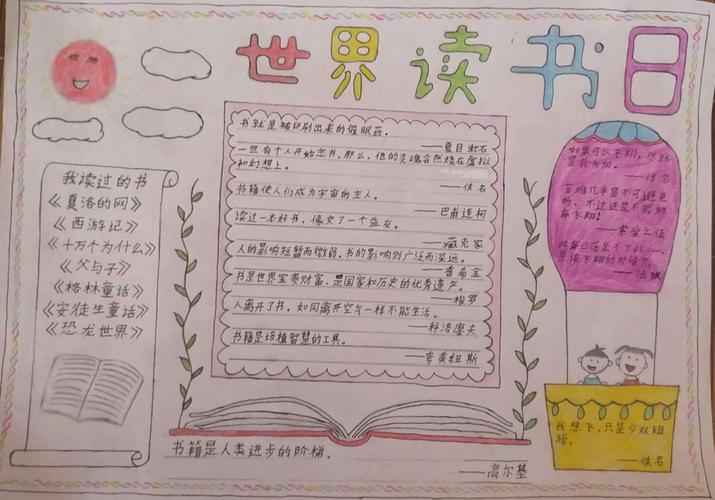 世界读书日
我读过的书
《夏洛的网》
《西游记》
《十万个为什么》
《父与子》
《格林童话》
《安徒生童话》
《恐龙世界》
书就是被印刷出来的催眠药。
——夏目漱石
一旦有个人开始恋书,那么,他的灵魂会燃烧在虚拟
和幻想上。
——佚名
书籍使人们成为宇宙的主人。
——巴甫连柯
读过一本好书、像交了一个益友。
——臧克家
人的影响短暂而微弱,书的影响则广泛而深远。
——普希金
书是世界宝贵财富,是国家和历史的优秀遗产。
——梭罗
人离开了书,如同离开空气一样不能生活。
——科洛廖夫
书籍是培植智慧的工具。
——夸美纽斯
书籍是人类进步的阶梯.
——高尔基
如果可以飞翔,
——佚名
苦难几乎是不可避免
的、不过还是不能放
弃飞翔!
——索爱么佳
我想飞、只是少双翅
膀。
——佚名